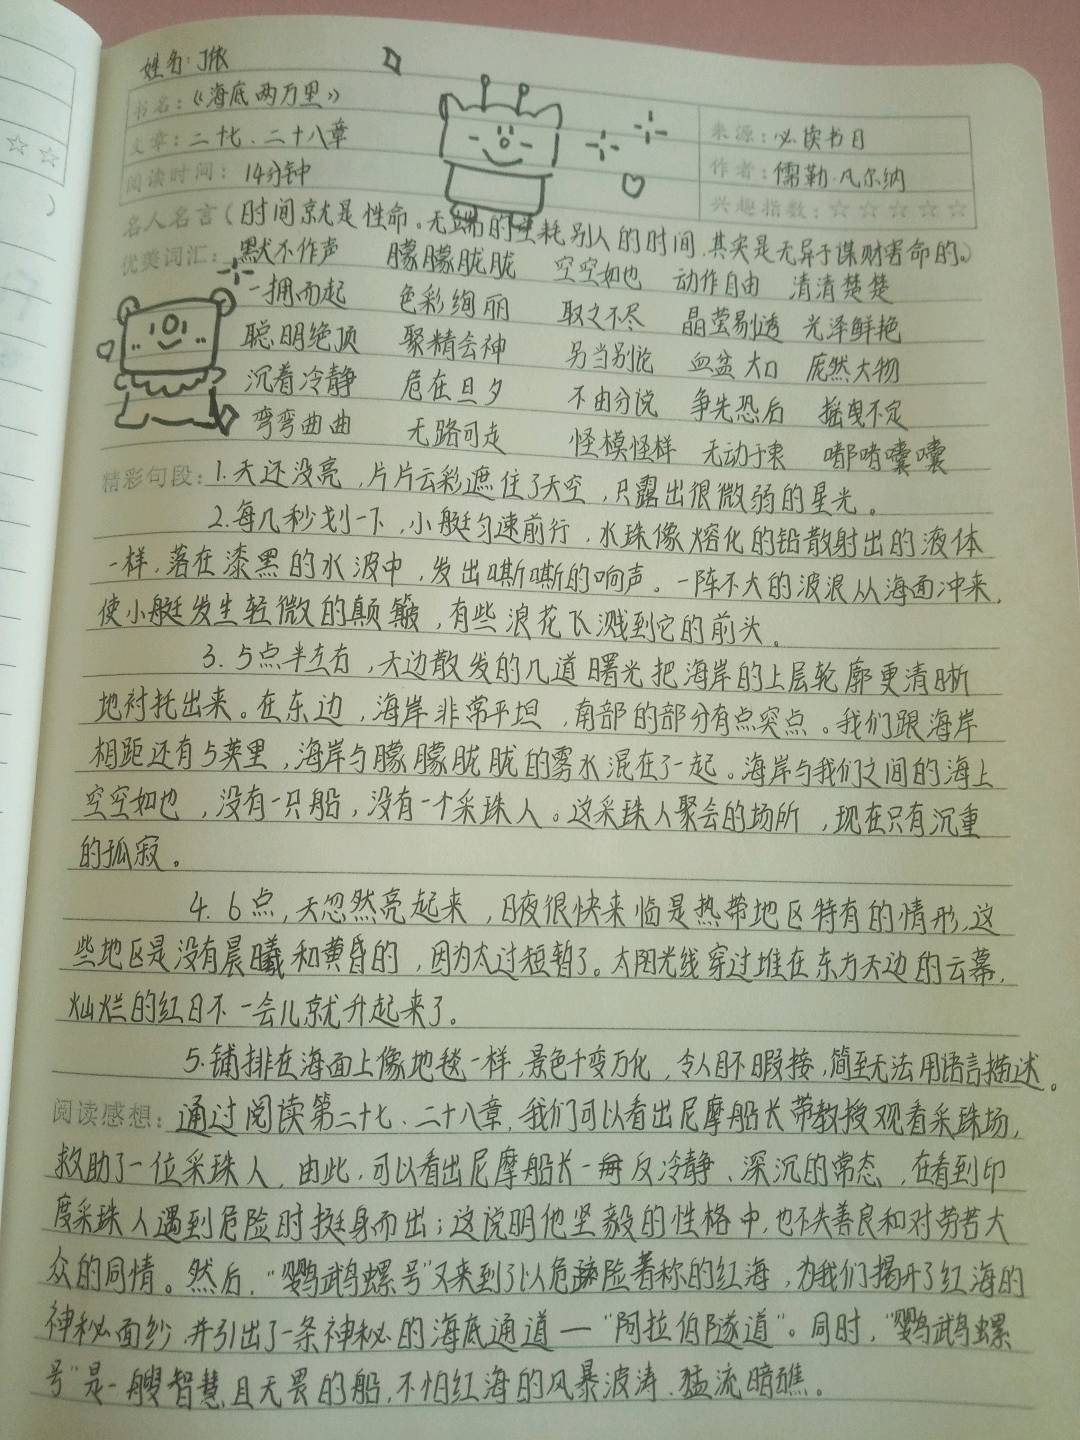 姓名:
书名:《海底两万里》
来源:必读书目
文章:二十七、二十八章
作者:儒勒·凡尔纳
阅读时间:14分钟
兴趣指数:☆☆☆☆☆
名人名言(时间就是性命。无端的空耗别人的时间,其实是无异于谋财害命的。)
优美词汇:默不作声 朦朦胧胧 空空如也 动作自由 清清楚楚
一拥而起 色彩绚丽 取之不尽 晶莹剔透 光泽鲜艳
聪明绝顶 聚精会神 另当别说 血盆大口 庞然大物
沉着冷静 危在旦夕 不由分说 争先恐后 摇曳不定
弯弯曲曲 无路可走 怪模怪样 无动于衷 嘟嘟囔囔
精彩句段:1.天还没亮,片片云彩遮住了天空,只露出很微弱的星光。
2.每几秒划一下,小艇匀速前行,水珠像熔化的铅散射出的液体
一样,落在漆黑的水波中,发出嘶嘶的响声。一阵不大的波浪从海面冲来,
使小艇发生轻微的颠簸,有些浪花飞溅到它的前头。
3.5点半左右,天边散发的几道曙光把海岸的上层轮廓更清晰
地衬托出来。在东边,海岸非常平坦,南部的部分有点突点。我们跟海岸
相距还有5英里,海岸与朦朦胧胧的雾水混在了一起。海岸与我们之间的海上
空空如也,没有一只船,没有一个采珠人。这采珠人聚会的场所,现在只有沉重
的孤寂。
4.6点,天忽然亮起来,日夜很快来临是热带地区特有的情形,这
些地区是没有晨曦和黄昏的,因为太过短暂了。太阳光线穿过堆在东方天边的云幕,
灿烂的红日不一会儿就升起来了。
5.铺排在海面上像地毯一样,景色千变万化,令人目不暇接,简至无法用语言描述。
阅读感想:通过阅读第二十七、二十八章,我们可以看出尼摩船长带教授观看采珠场,
救助了一位采珠人,由此,可以看出尼摩船长一毎反冷静、深沉的常态,在看到印
度采珠人遇到危险时挺身而出;这说明他坚毅的性格中,也不失善良和对劳苦大
众的同情。然后,"鹦鹉螺号"又来到了以危险著称的红海,为我们揭开了红海的
神秘面纱,并引出了一条神秘的海底通道—"阿拉伯隧道"。同时,"鹦鹉螺
号"是一艘智慧且无畏的船,不怕红海的风暴波涛、猛流暗礁。